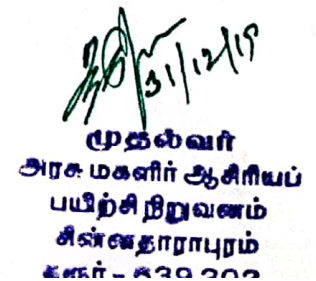 31/12/19
முதல்வர்
அரசு மகளிர் ஆசிரியப்
பயிற்சி நிறுவனம்
சின்னதாராபுரம்
கரூர் - 639 202